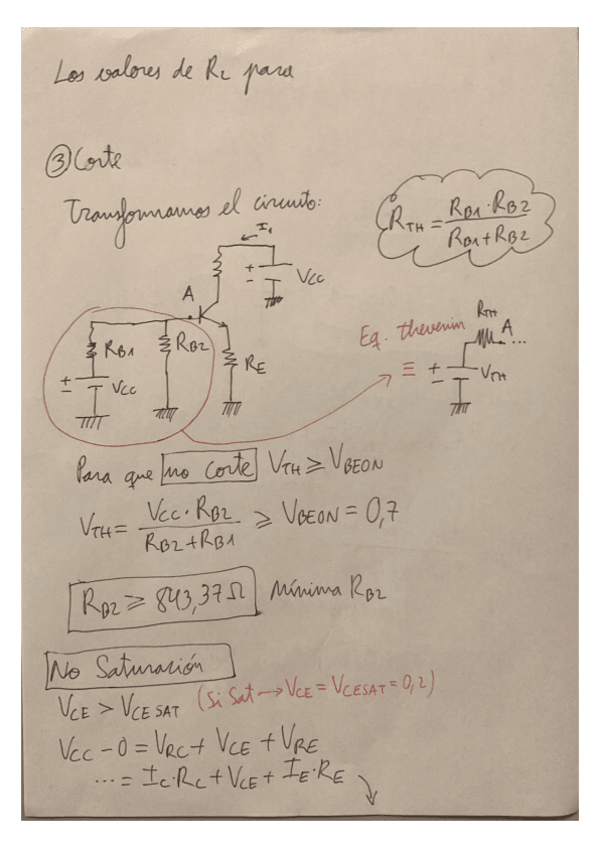 Los valores de R2 para
③ Corte
Transformamos el circuito:
RTH = RB1·RB2 / RB1+RB2
I1
+
-
VCC
A
RB1
RB2
+
-
VCC
RE
Eq. thevenin
≡
RTH
A ...
+
-
VTH
Para que no corte VTH ≥ VBEON
VTH = VCC·RB2 / RB2+RB1 ≥ VBEON = 0,7
RB2 ≥ 843,37Ω Mínima RB2
No Saturación
VCE > VCE SAT (Si Sat → VCE = VCESAT = 0,2)
VCC - 0 = VRC + VCE + VRE
... = IC·RC + VCE + IE·RE